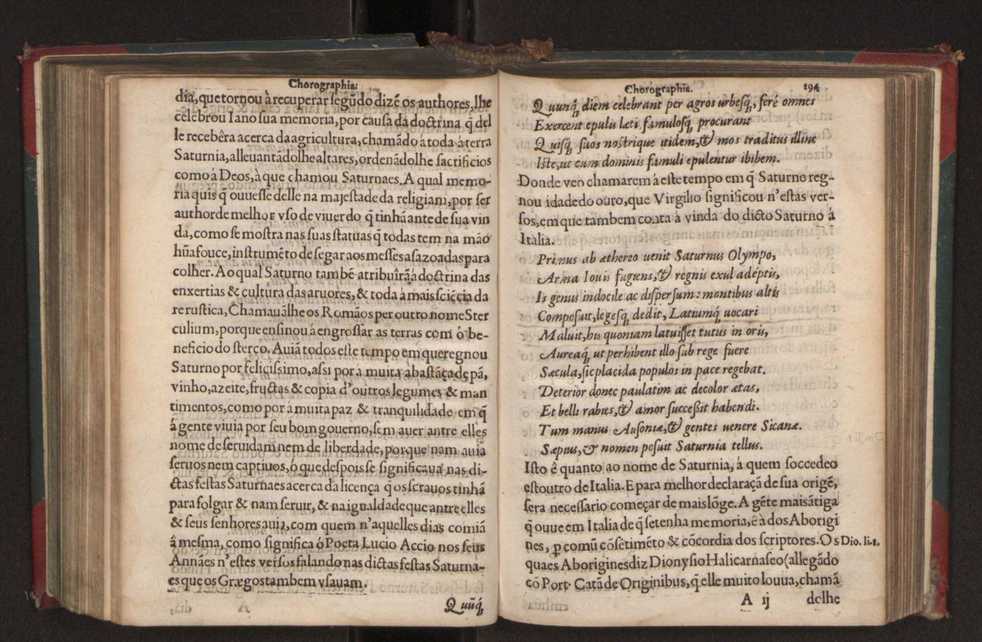 Chorographia.
dia, que tornou à recuperar segũdo dizẽ os authores, lhe
celebrou Iano sua memoria, por causa da doctrina q̃ del
le recebêra acerca da agricultura, chamãdo à toda à terra
Saturnia, alleuantãdolhe altares, ordenãdolhe sacrificios
como à Deos, à que chamou Saturnaes. A qual memo-
ria quis q̃ ouuesse delle na majestade da religiam, por ser
author de melhor vso de viuer do q̃ tinhã ante de sua vin
da, como se mostra nas suas statuas q̃ todas tem na mão
hũa fouce, instrumẽto de segar aos messes a sazoadas para
colher. Ao qual Saturno tambẽ atribuîrã à doctrina das
enxertias & cultura das aruores, & toda à mais sciẽcia da
re rustica, Chamauãlhe os Romãos per outro nome Ster
culium, porque ensinou à engrossar as terras com ò be-
neficio do sterco. Auiã todos este tempo em que regnou
Saturno por felicissimo, assi por à muita abastãça de pã,
vinho, azeite, fructas & copia d'outros legumes & man
timentos, como por à muita paz & tranquilidade em q̃
á gente viuia por seu bom gouerno, sem auer antre elles
nome de seruidam nem de liberdade, porque nam auia
seruos nem captiuos, ò que despois se significaua nas di-
ctas festas Saturnaes acerca da licença q̃ os scrauos tinhã
para folgar & nam seruir, & na igualdade que antre elles
& seus senhores auia, com quem n'aquelles dias comiã
á mesma, como significa ò Poeta Lucio Accio nos seus
Annães n'estes versos falando nas dictas festas Saturna-
es que os Grægos tambem vsauam.
Quũq;
Chorographia. 194
Quunq; diem celebrant per agros urbesq;, ferè omnes
Exercent epulis læti famulosq; procurant
Quisq; suos nostrique itidem, & mos traditus illinc
Iste, ut cum dominis famuli epulentur ibibem.
Donde ven chamarem á este tempo em q̃ Saturno reg-
nou idade do ouro, que Virgilio significou n'estas ver-
sos, em que tambem conta à vinda do dicto Saturno á
Italia.
Primus ab æthereo uenit Saturnus Olympo,
Arma Iouis fugiens, & regnis exul adeptis,
Is genus indocile ac dispersum montibus altis
Composuit, legesq; dedit, Latiumq; uocari
Maluit, his quoniam latuisset tutus in oris,
Aureaq; ut perhibent illo sub rege fuere
Sæcula, sic placida populos in pace regebat.
Deterior donec paulatim ac decolor ætas,
Et belli rabies, & amor successit habendi.
Tum manus Ausoniæ, & gentes uenere Sicanæ.
Sæpius, & nomen posuit Saturnia tellus.
Isto é quanto ao nome de Saturnia, á quem soccedeo
estoutro de Italia. E para melhor declaraçã de sua origẽ,
sera necessario começar de mais lõge. A gẽte mais ãtiga
q̃ ouue em Italia de q̃ se tenha memoria, é à dos Aborigi
nes, p comũ cõsẽtimẽto & cõcordia dos scriptores. Os
Dio. li. 1.
quaes Aborigines diz Dionysio Halicarnaseo (allegãdo
cõ Port. Catã de Originibus, q̃ elle muito louua, chamã
A ij delhe